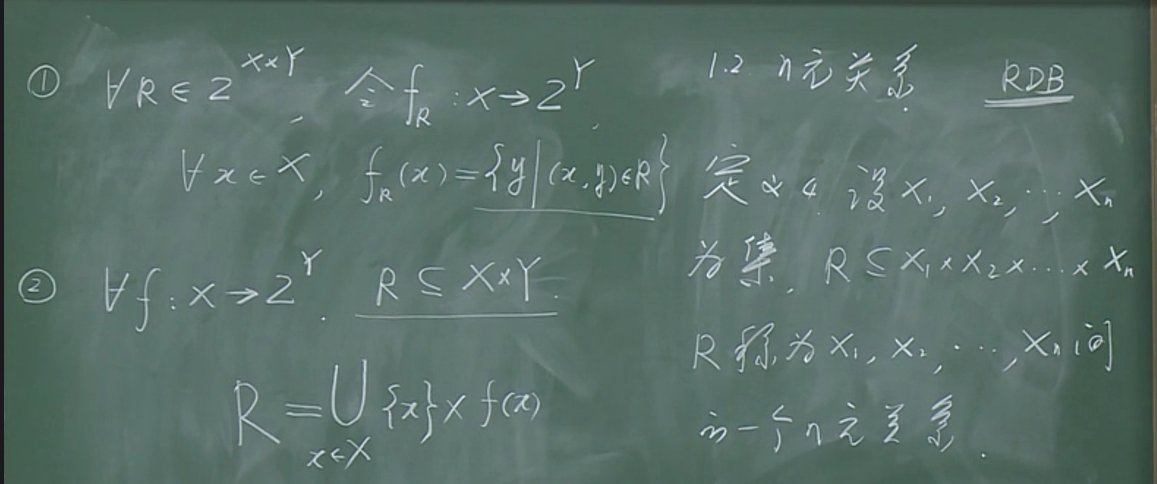 ① ∀R∈2^{X×Y}, 令 f_R : X→2^Y,
∀x∈X, f_R(x)={y|(x,y)∈R}
② ∀f:X→2^Y. R⊆X×Y.
R=⋃_{x∈X}{x}×f(x)
1.2. n元关系. RDB
定义4. 设X₁, X₂, …, Xₙ
为集, R⊆X₁×X₂×…×Xₙ
R称为X₁, X₂, …, Xₙ间
的一个n元关系.